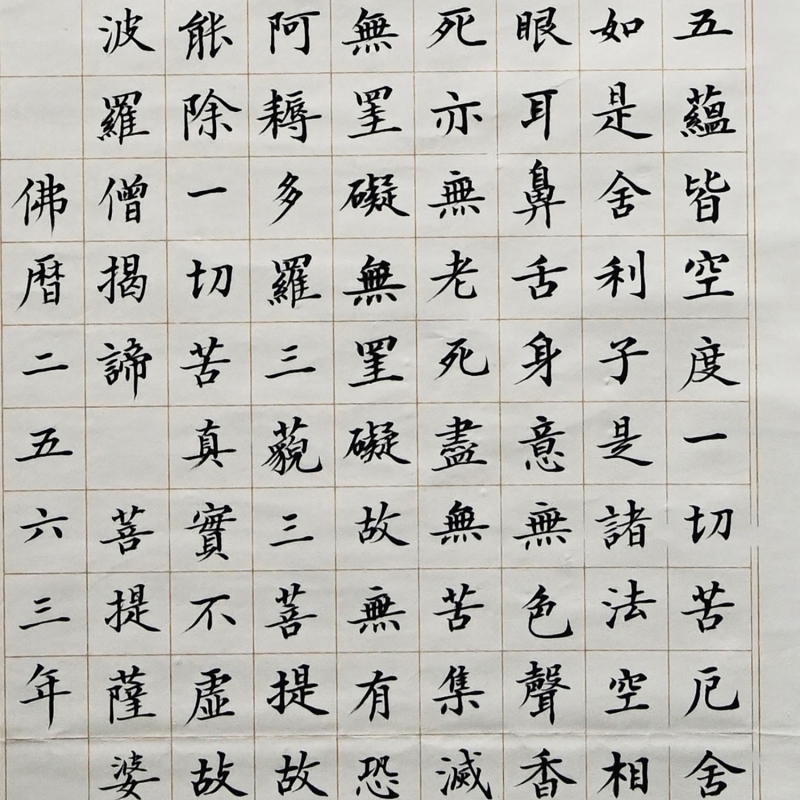 五蘊皆空度一切苦厄舍
如是舍利子是諸法空相
眼耳鼻舌身意無色聲香
死亦無老死盡無苦集滅
無罣礙無罣礙故無有恐
阿耨多羅三藐三菩提故
能除一切苦真實不虛故
波羅僧揭諦 菩提薩婆
佛曆二五六三年